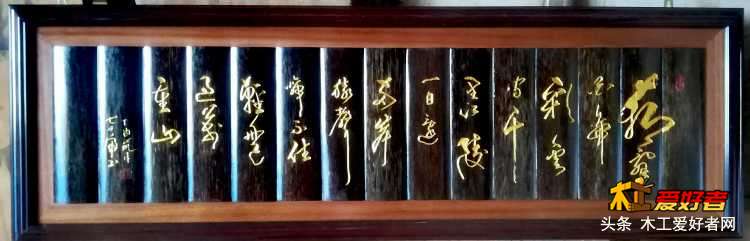 朝辭
白帝
彩雲
间千
里江陵
一日還
两岸
猿聲
啼不住
輕舟已
过萬
重山
丁酉
木工爱好者
头条 木工爱好者网